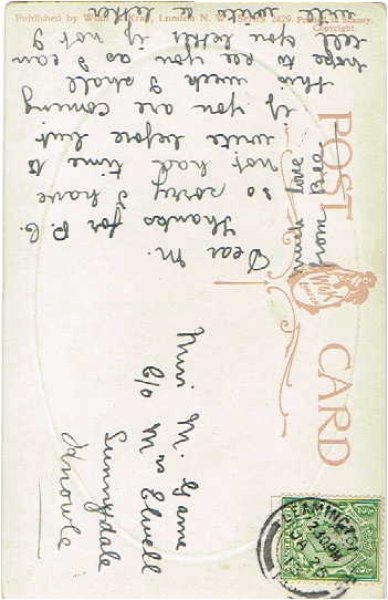 Published by Wildt & Kray, London N.W. Series 2429. Printed in Saxony.
Copyright.
POST CARD
Dear M.
Thanks for P.C.
so sorry I have
not had time to
write before but
if you are coming
this week I shall
hope to see you as I can
tell you better if not I
will write a letter
much love
from Bee
Miss M. Game
C/o Mrs Elwell
Sunnydale
Knowle
LEAMINGTON
2.30PM
JA 21